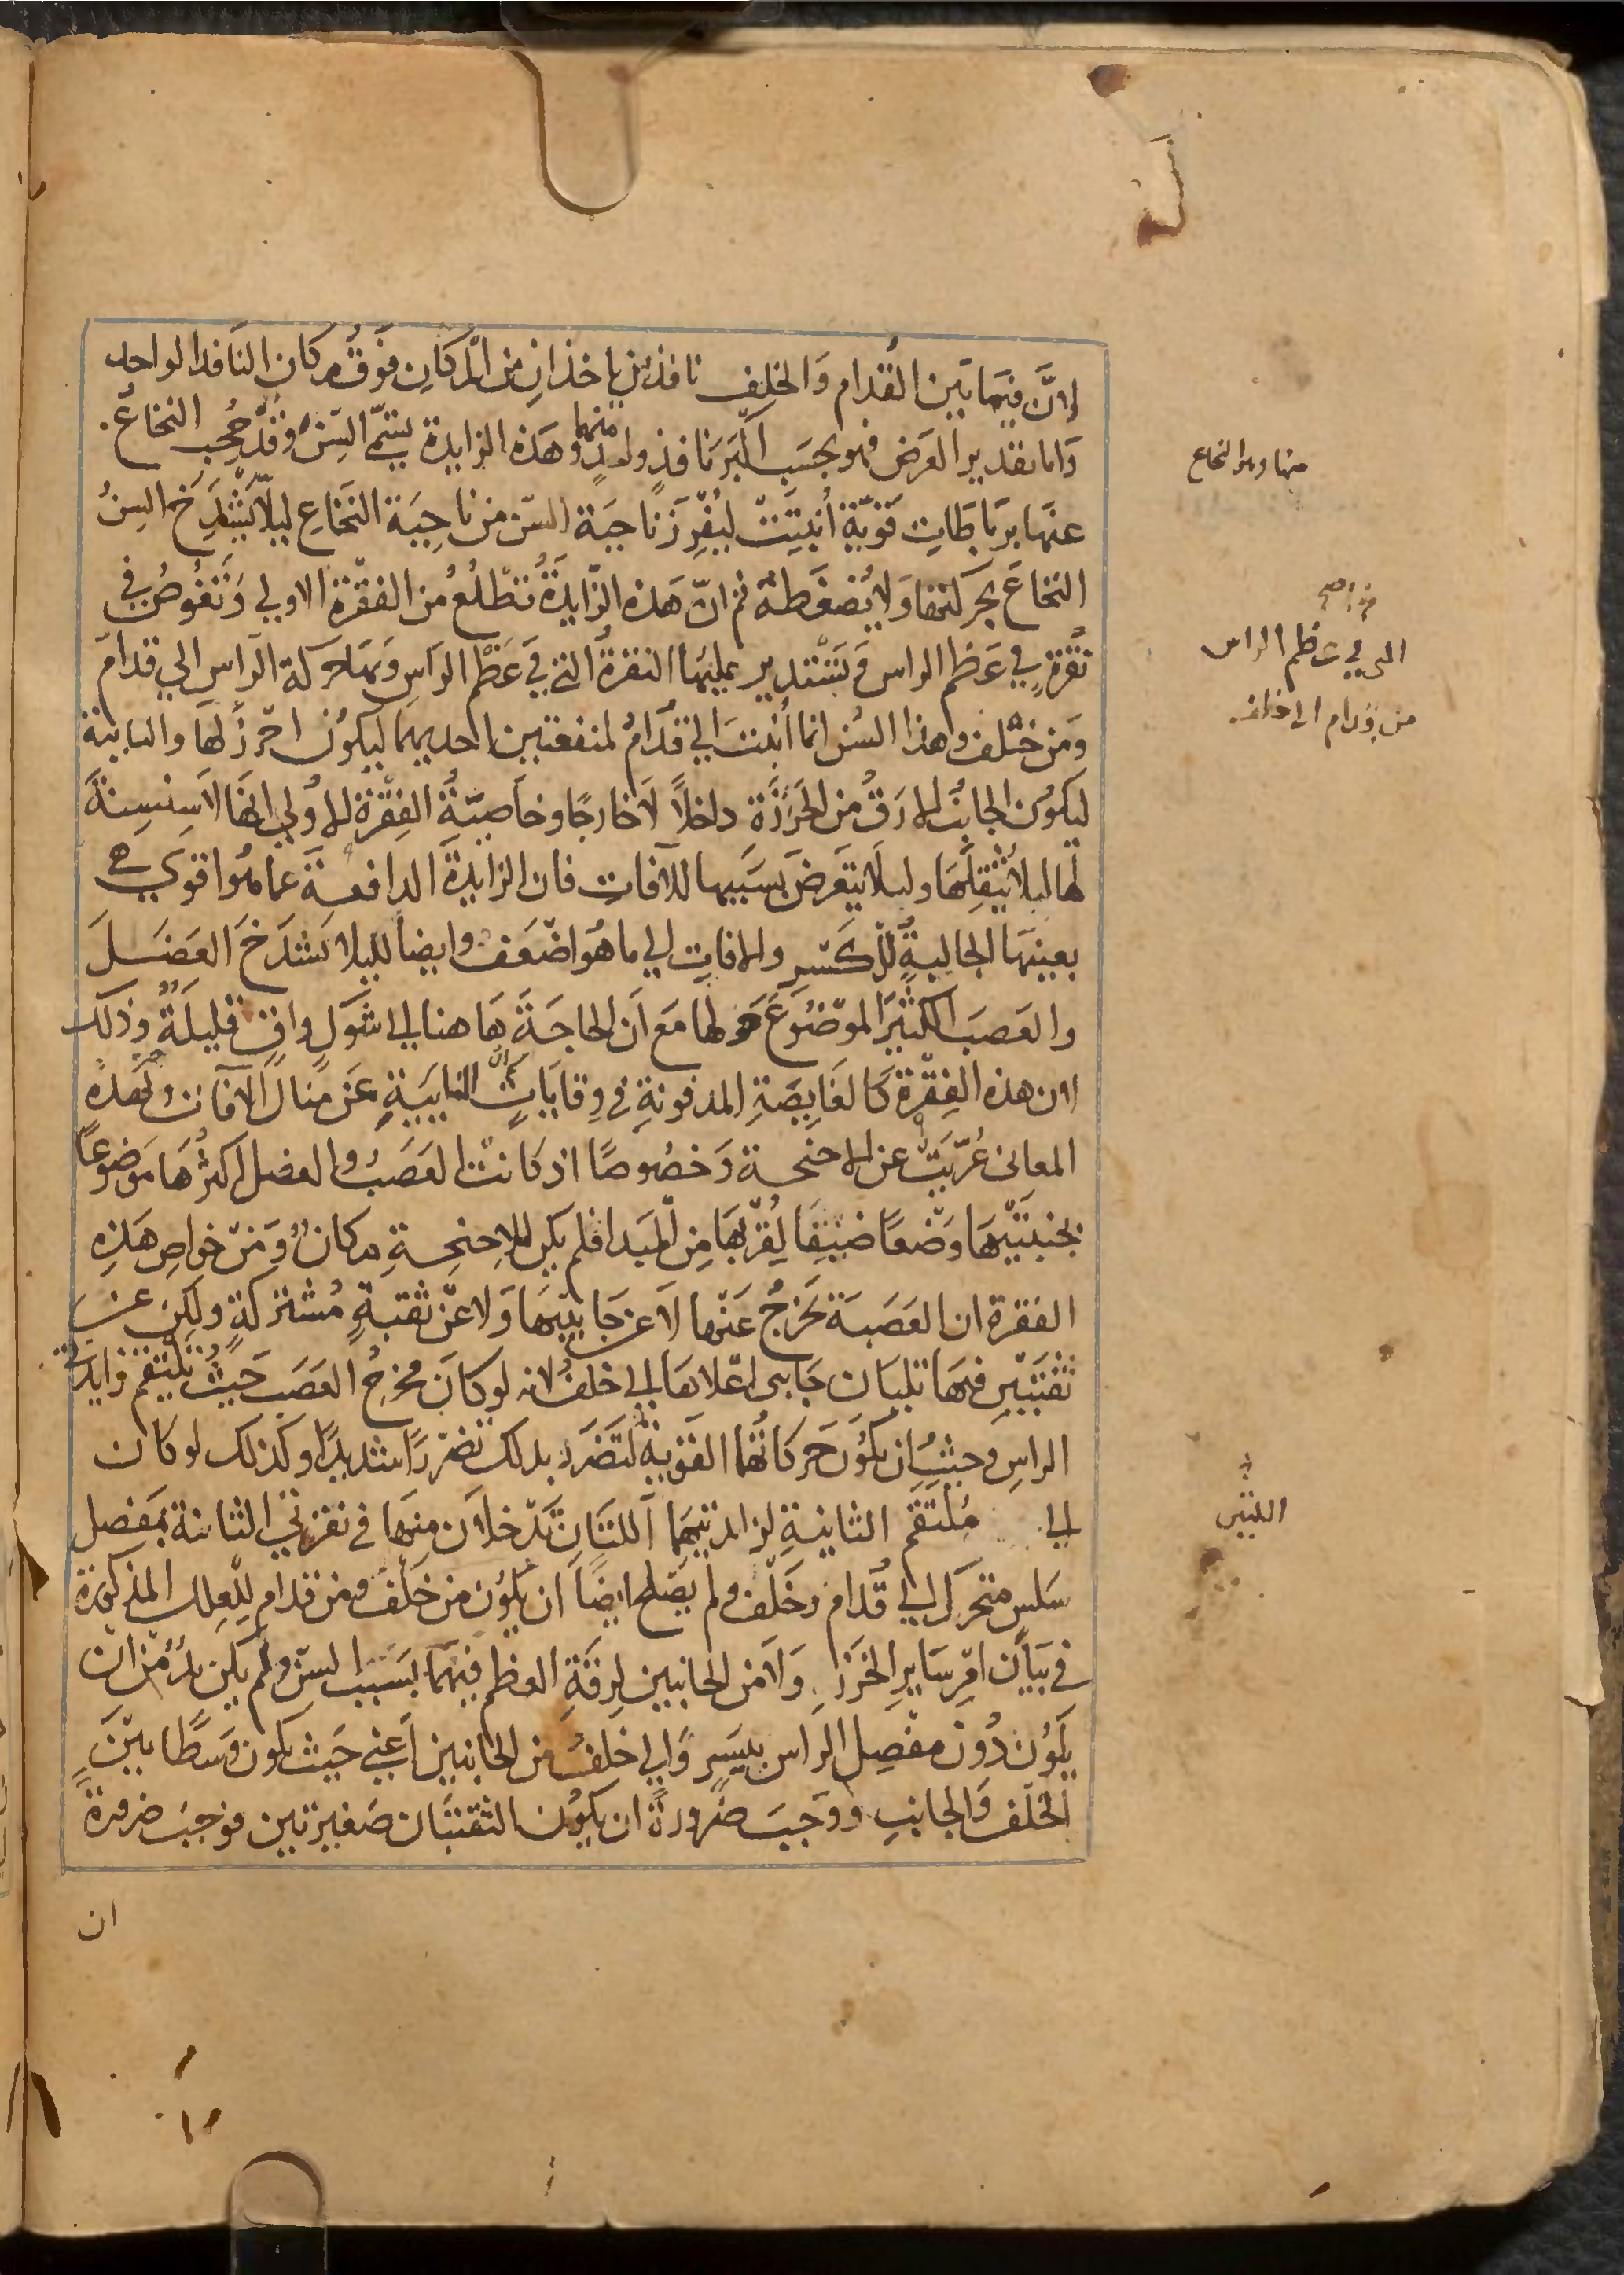 لان فيما بين القدام والخلف نافذين ياخذان من المكان فوق مكان النافذ الواحد
واما تقدير العرض فهو بحسب اكبر نافذ واحد منهما وهذه الزايدة يسمى السن وقد حجب النخاع
عنها برباطات قوية انبتت ليفرز ناحية السن من ناحية النخاع ليلا يشدخ السن
النخاع بحركتها ولا يضغطه ثم ان هذه الزايدة تطلع من الفقرة الاولي وتغوص في
نقرة في عظم الراس ويستدير عليها النقرة التي في عظم الراس وبها حركة الراس الي قدام
ومن خلف وهذا السن انما انبتت الي قدام لمنفعتين احديهما ليكون احرز لها والثانية
ليكون الجانب الارق من الخرزة داخلا لا خارجا وخاصية الفقرة الاولي انها لا سنسنة
لها ليلا يثقلها وليلا يتعرض بسببها للافات فان الزايدة الدافعة عما هو اقوي هي
بعينها الجالبة للكسر والافات الي ما هو اضعف وايضا ليلا يشدخ العضل
والعصب الكثير الموضوع حولها مع ان الحاجة هاهنا الي شوك واق قليلة وذلك
لان هذه الفقرة كالغايصة المدفونة في وقايات النايية عن منال الافات ولهذه
المعاني عريت عن الاجنحة وخصوصا اذ كانت العصب والعضل اكثرها موضوعا
بجنبتيها وضعا ضيقا لقربها من المبدا فلم يكن للاجنحة مكان ومن خواص هذه
الفقرة ان العصبة تخرج عنها لا عن جانبيها ولا عن ثقبة مشتركة ولكن عن
ثقبتين فيها تليان جانبي اعلاها الي خلف لانه لو كان مخرج العصب حيث تلتقم زايدتي
الراس وحيث ان يكون حركاتها القوية لتضرر بذلك تضررا شديدا وكذلك لو كان
الي ملتقم الثانية لزايدتيها اللتان تدخلان منها في نقرتي الثانية بمفصل
سلس متحرك الي قدام وخلف ولم يصلح ايضا ان يكون من خلف ومن قدام للعلل المذكورة
في بيان امر ساير الخرز ولا من الجانبين لرقة العظم فيهما بسبب السن ولم يكن بد من ان
يكون دون مفصل الراس بيسير والي خلف من الجانبين اعني حيث يكون وسطا بين
الخلف والجانب ووجب ضرورة ان يكون الثقبتان صغيرتين فوجب ضرورة
ان
منها وبين النخاع
التي في عظم الراس
من قدام الي خلف
اللتين